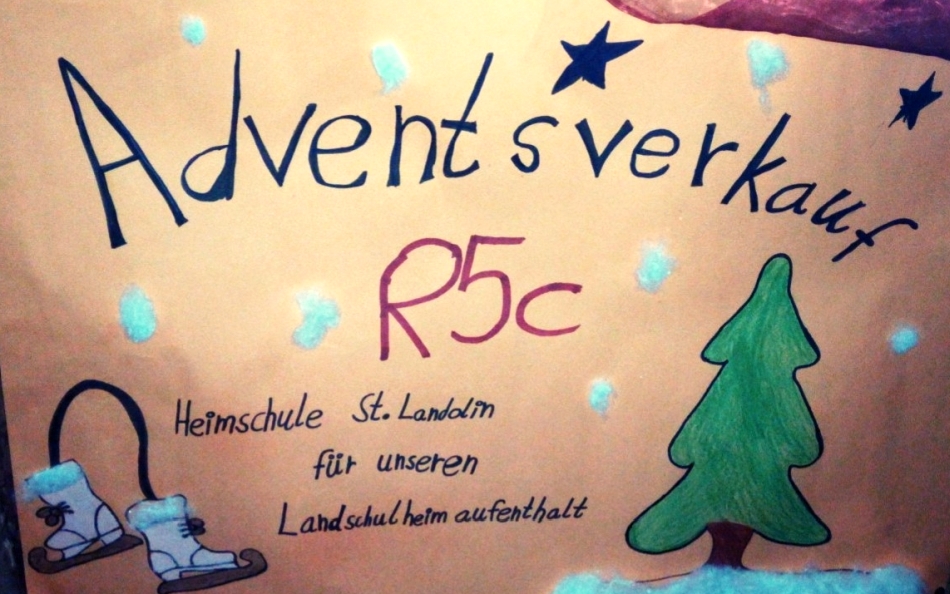 Adventsverkauf
R5c
Heimschule St. Landolin
für unseren
Landschulheimaufenthalt